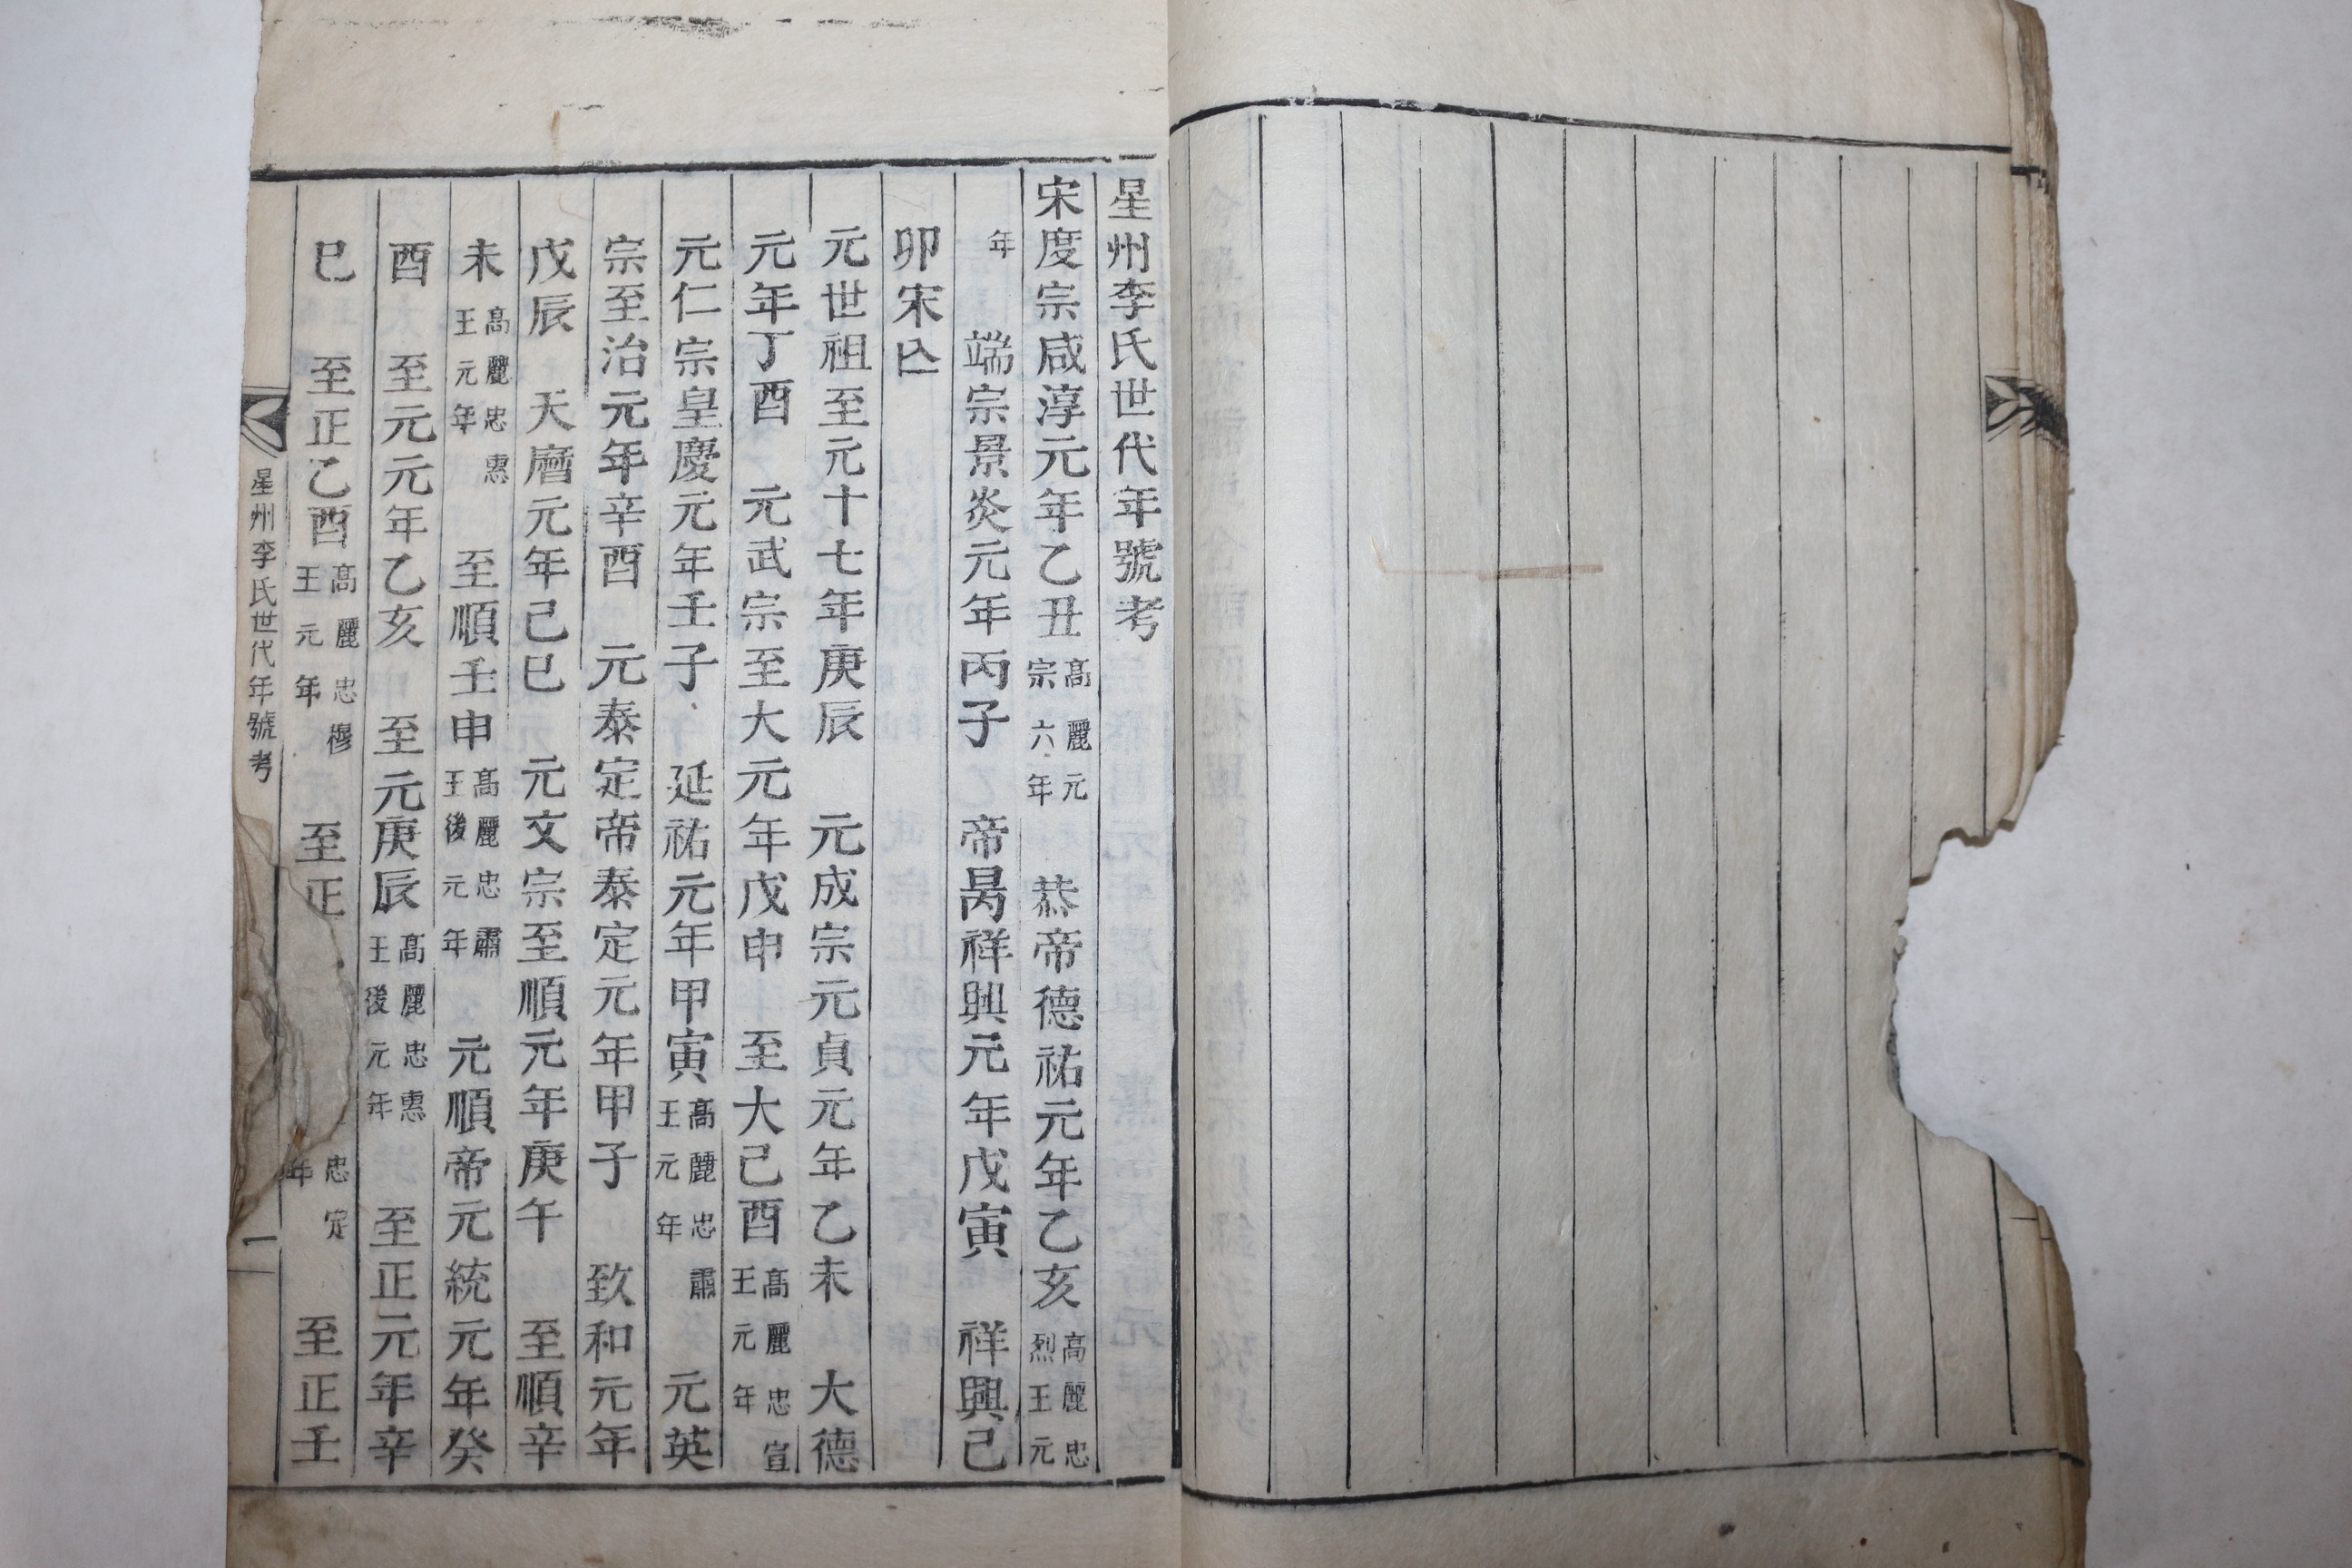 星州李氏世代年號考
宋度宗咸淳元年乙丑 高麗元宗六年 恭帝德祐元年乙亥 高麗忠烈王元
年 端宗景炎元年丙子 帝昺祥興元年戊寅 祥興己
卯宋亾
元世祖至元十七年庚辰 元成宗元貞元年乙未 大德
元年丁酉 元武宗至大元年戊申 至大己酉 高麗忠宣王元年
元仁宗皇慶元年壬子 延祐元年甲寅 高麗忠肅王元年 元英
宗至治元年辛酉 元泰定帝泰定元年甲子 致和元年
戊辰 天曆元年己巳 元文宗至順元年庚午 至順辛
未 高麗忠惠王元年 至順壬申 高麗忠肅王後元年 元順帝元統元年癸
酉 至元元年乙亥 至元庚辰 高麗忠惠王後元年 至正元年辛
巳 至正乙酉 高麗忠穆王元年 至正 忠定年 至正壬
星州李氏世代年號考 一